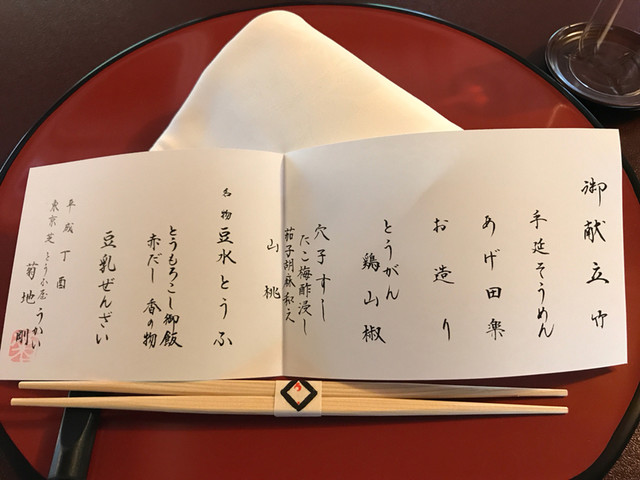 御献立 竹
手延そうめん
あげ田楽
お造り
とうがん
鶏山椒
穴子すし
たこ梅酢浸し
茄子胡麻和え
山桃
名物 豆水とうふ
とうもろこし御飯
赤だし 香の物
豆乳ぜんざい
平成丁酉
東京芝 とうふ屋うかい
菊地 剛